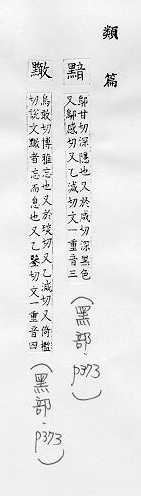 類篇
黯
鄔甘切深隱也又於咸切深黑色
又鄔感切又乙減切文一重音三
(黑部.p373)
黬
烏敢切博雅忘也又於琰切又乙減切又倚檻
切說文黬者忘而息也又乙鑒切文一重音四
(黑部.p373)